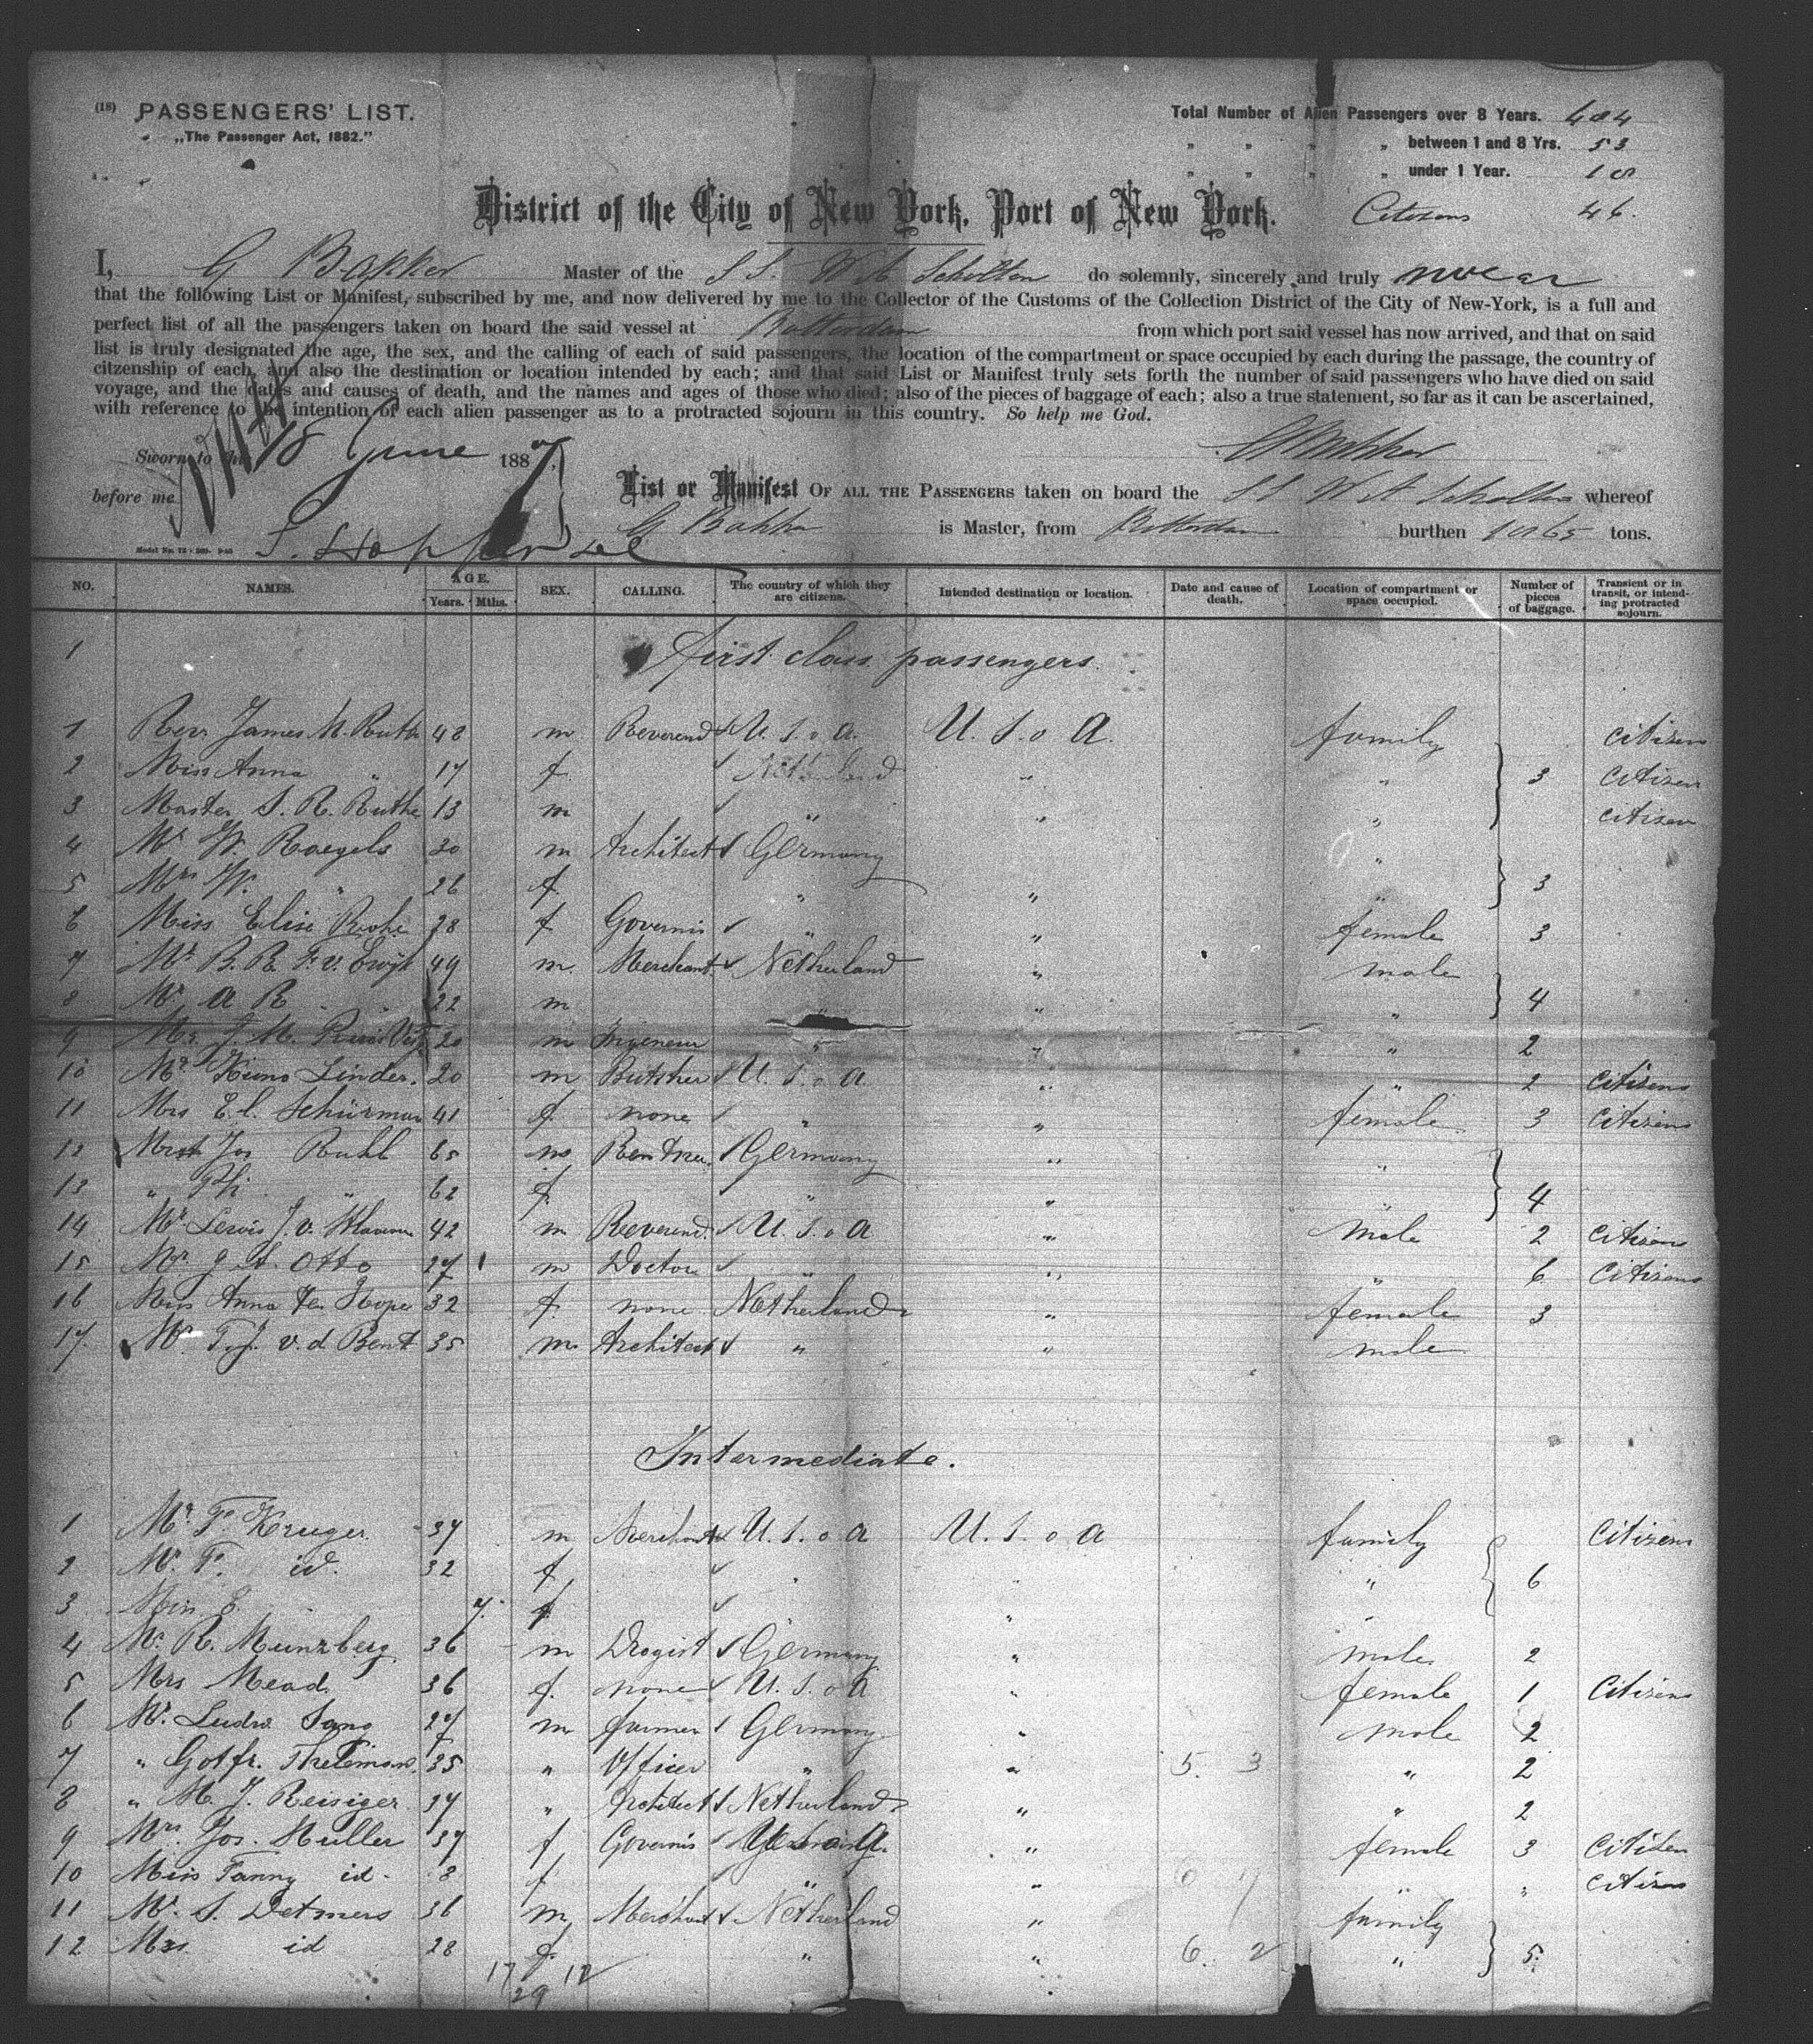 (18) PASSENGERS' LIST.
„The Passenger Act, 1882."
Total Number of Alien Passengers over 8 Years. 404
„ „ „ „ between 1 and 8 Yrs. 53
„ „ „ „ under 1 Year. 10
Citizens 46.
District of the City of New York, Port of New York.
I, G Bakker Master of the S S. W A Scholten do solemnly, sincerely and truly swear
that the following List or Manifest, subscribed by me, and now delivered by me to the Collector of the Customs of the Collection District of the City of New-York, is a full and
perfect list of all the passengers taken on board the said vessel at Rotterdam from which port said vessel has now arrived, and that on said
list is truly designated the age, the sex, and the calling of each of said passengers, the location of the compartment or space occupied by each during the passage, the country of
citzenship of each, and also the destination or location intended by each; and that said List or Manifest truly sets forth the number of said passengers who have died on said
voyage, and the dates and causes of death, and the names and ages of those who died; also of the pieces of baggage of each; also a true statement, so far as it can be ascertained,
with reference to the intention of each alien passenger as to a protracted sojourn in this country. So help me God.
G Bakker
Sworn to this 18 June 1887,
before me
List or Manifest OF ALL THE PASSENGERS taken on board the S S W A Scholten whereof
G Bakker is Master, from Rotterdam burthen 1065 tons.
NO. NAMES. AGE. Years. Mths. SEX. CALLING. The country of which they are citizens. Intended destination or location. Date and cause of death. Location of compartment or space occupied. Number of pieces of baggage. Transient or in transit, or intending protracted sojourn.
1 first class passengers.
1 Rev. James M. Ruth 48 m Reverend U. S. o A. U. S. o A. family citizen
2 Miss Anna „ 17 f. Netherland „ „ 3 citizen
3 Master S. R. Ruthe 13 m „ „ „ citizen
4 Mr W. Raegels 30 m Architect Germany „
5 Mrs W. „ 26 f. „ „ „ 3
6 Miss Elise 28 f. Governis „ „ female 3
7 Mr B. R. F. v. Ewijk 49 m. Merchant Netherland „ male
8 Mr A R 22 m „ „ „ 4
9 Mr. J. M. 20 m Ingeneur „ „ „ 2
10 Mr Kuno Linder. 20 m Butsher U. S. o A „ „ 2 citizens
11 Mrs E. C. Schürman 41 f. none „ „ female 3 citizens
12 Jos Ruhl 65 m Rentner. Germany „ „
13 „ „ 62 f. „ „ „ 4
14 Mr. Lewis J. v. 42 m Reverend. U. S. o A „ male 2 citizens
15 Mr. J. A. Otto 27 m Doctor „ „ „ 6 citizens
16 Miss Anna ten Hope 32 f. none Netherland „ female 3
17. Mr. T. J. v. d. Bent 35 m. Architect „ „ male
Intermediate.
1 Mr. F. Kruger. 37 m Merchant U. S. o A U. S. o A family citizens
2 Mr. F. id. 32 f. „ „ 6
3 Miss E. 7. f. „ „
4 Mr. R. Munzberg 36 m Drogist Germany „ male. 2
5 Mrs Mead. 36 f. none U. S. o A „ female 1 citizens
6 Mr. Ludw. 27 m farmer Germany „ male 2
7 „ Gotfr. Thieleman. 35 „ Officer „ „ 5. 3 „ 2
8 „ M. J. Reisiger. 37 „ Architect Netherland „ „ 2
9 Mrs. Jos. Muller 37 f Governis „ female 3 citizen
10 Miss Fanny id. 8 f. „ „ 6 7 „ „ citizen
11 Mr. S. Detmers 36 m Merchant Netherland „ family
12 Mrs. id 28 f. „ „ 6. 2 „ 5.
17 12
29